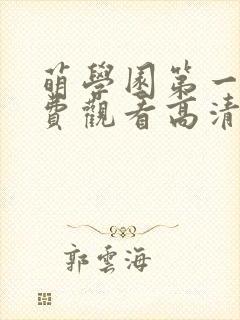 萌學園第一
費觀看高清
郭雲海